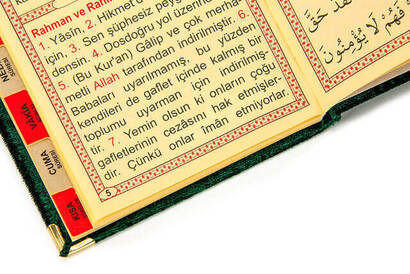 Rahman ve Rah
1. Yâsîn, 2. Hikmet
için, 3. Sen şüphesiz peyg
densin. 4. Dosdoğru yol üzerin
5. (Bu Kur'an) Gâlip ve çok merha
metli Allah tarafından indirilmiştir. 6.
Babaları uyarılmamış, bu yüzden
kendileri de gaflet içinde kalmış bir
toplumu uyarman için indirilmiş-
tir. 7. Yemin olsun ki onların çoğu
gafletlerinin cezasını hak etmişler-
dir. Çünkü onlar îmân etmiyorlar.
5
فَهُمْ لَا يُؤْمِنُونَ
VÂKIA
CUMA
KISA